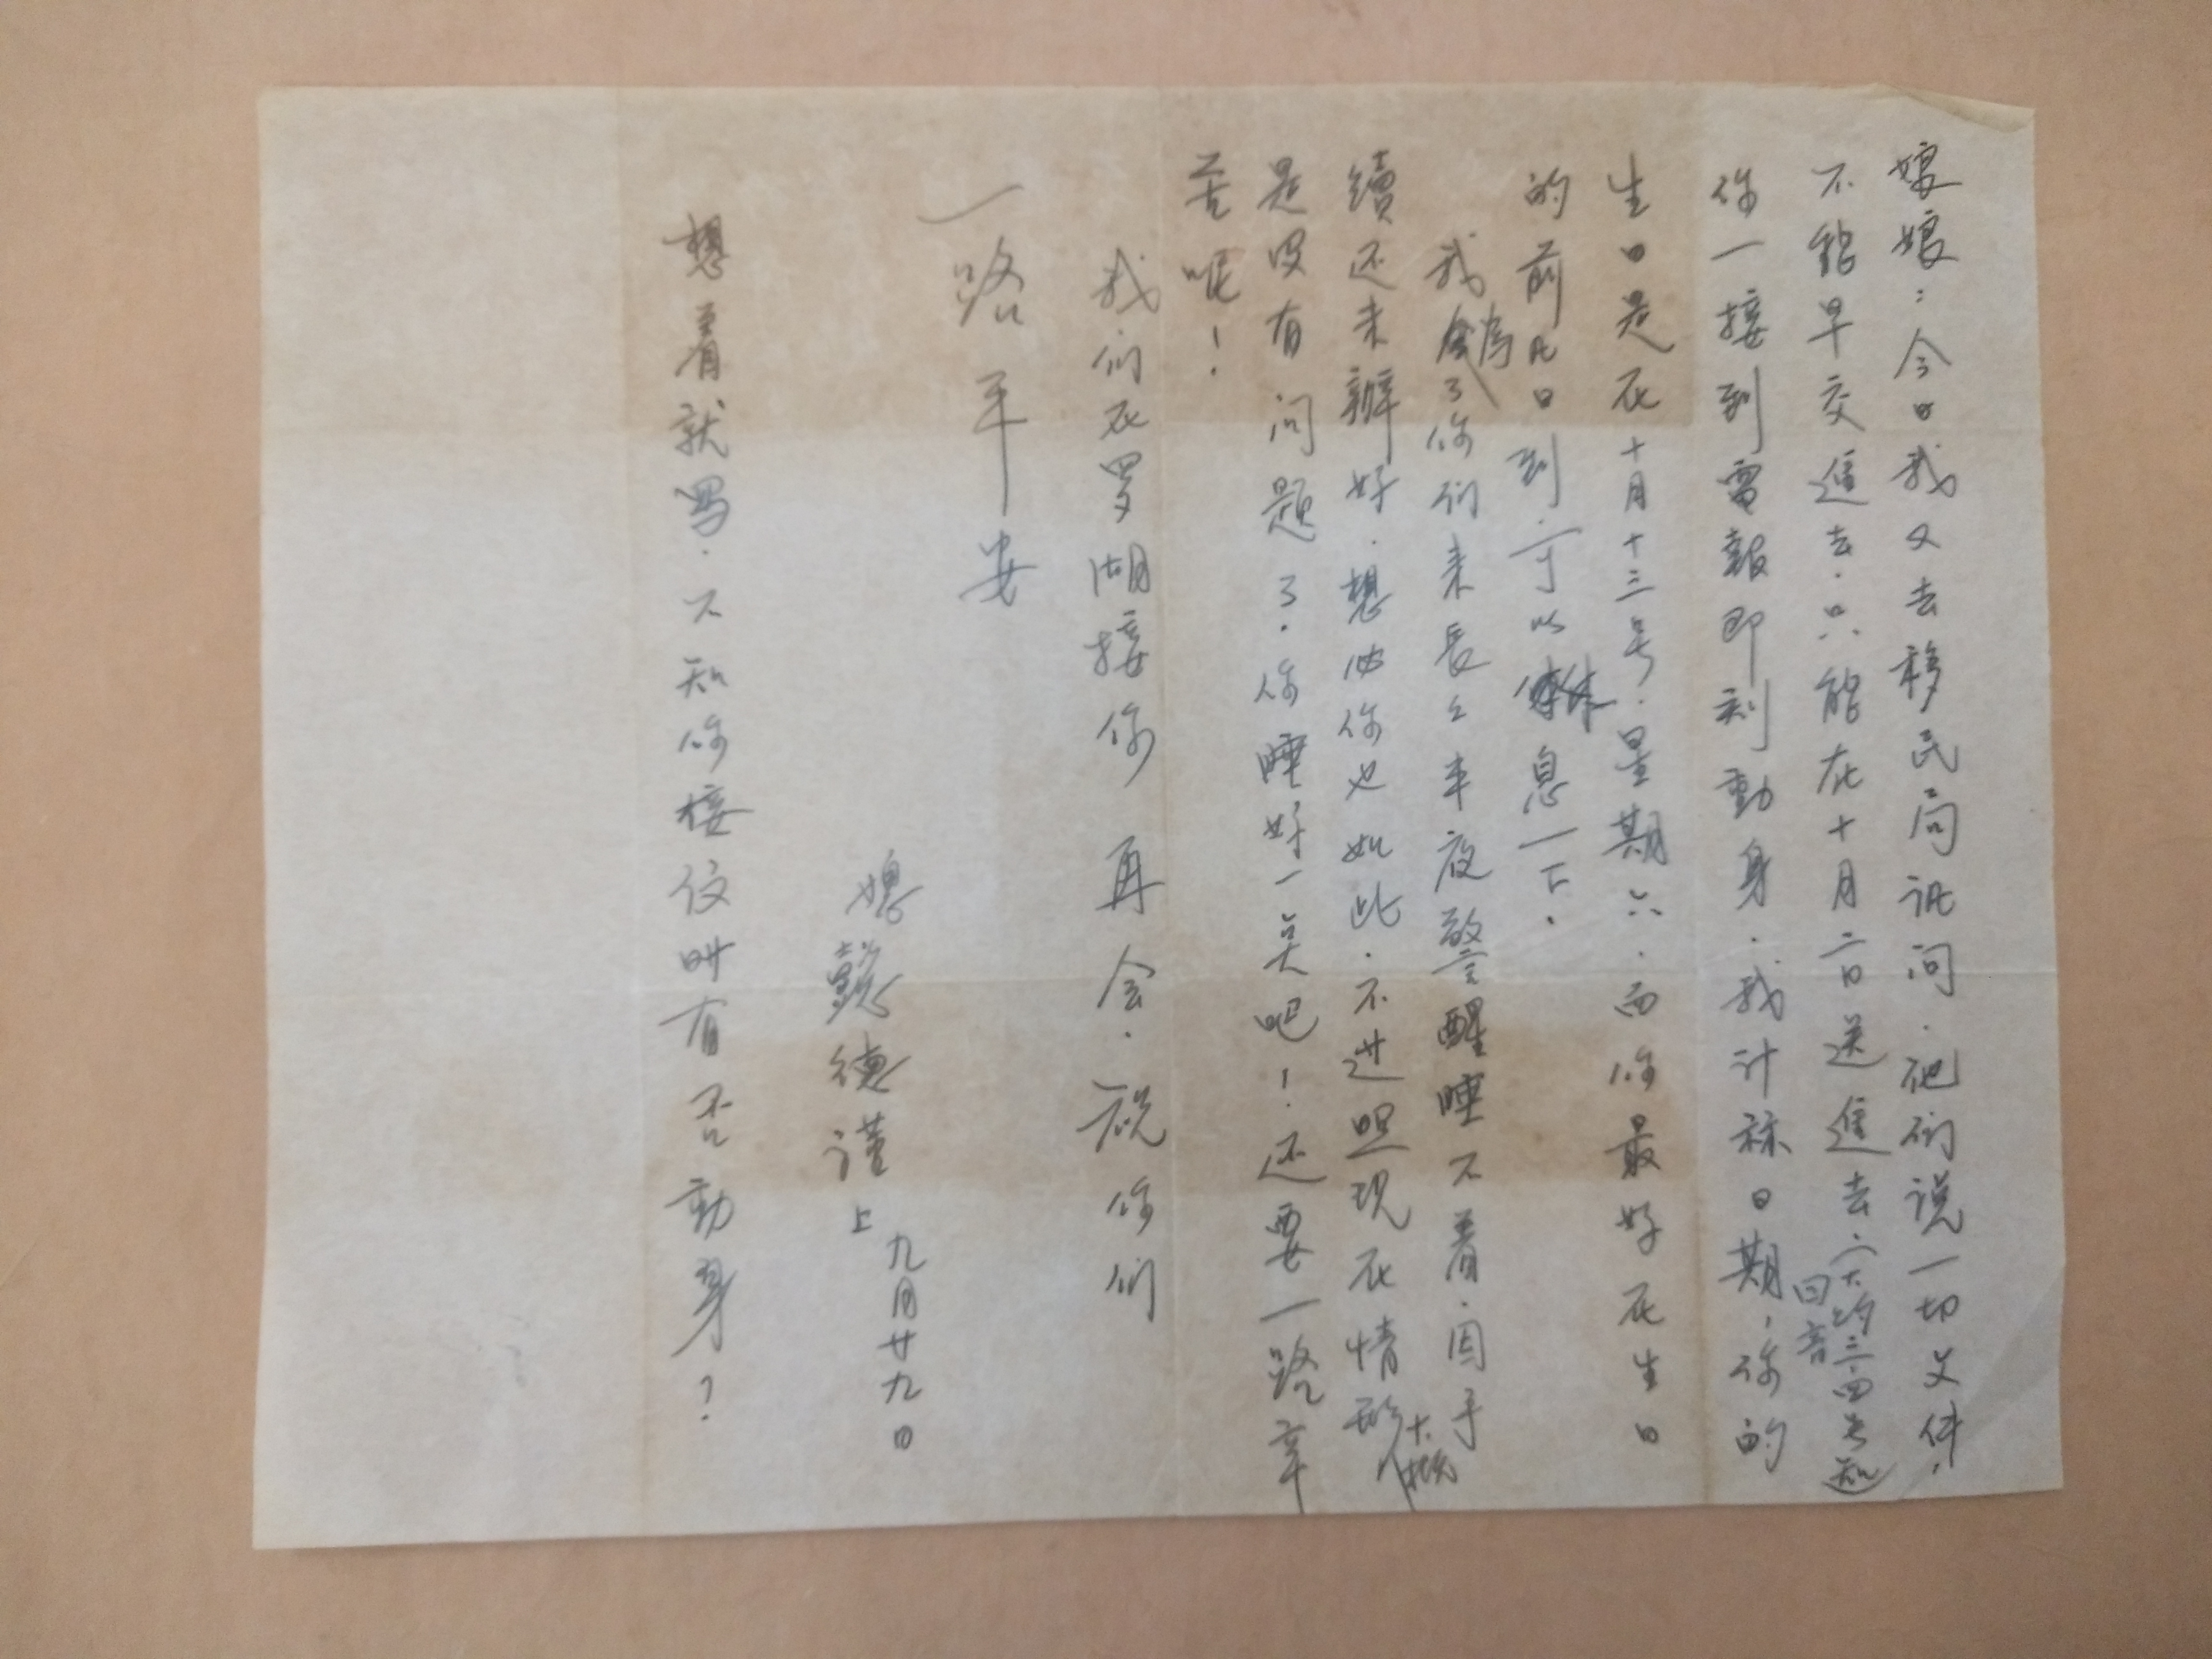 娘娘：今日我又去移民局讯问．他们说一切文件，
不能早交進去．只能在十月一日送進去．（大约三．四号知回音）
你一接到電報即刻動身．我计秝日期，你的
生日是在十月十三号．星期六．而你最好在生日
的前几日到．可以休息一下．
我為了你们来長々半夜警醒睡不着．因手
續还未辦好．想必你也如此．不过照现在情形大概
是没有问题了．你睡好一矣吧！还要一路辛
苦呢！
我们在罗湖接你 再会．祝你们
一路平安
媳懿德谨上 九月廿九日
想着就写．不知你接仪時有否動身？